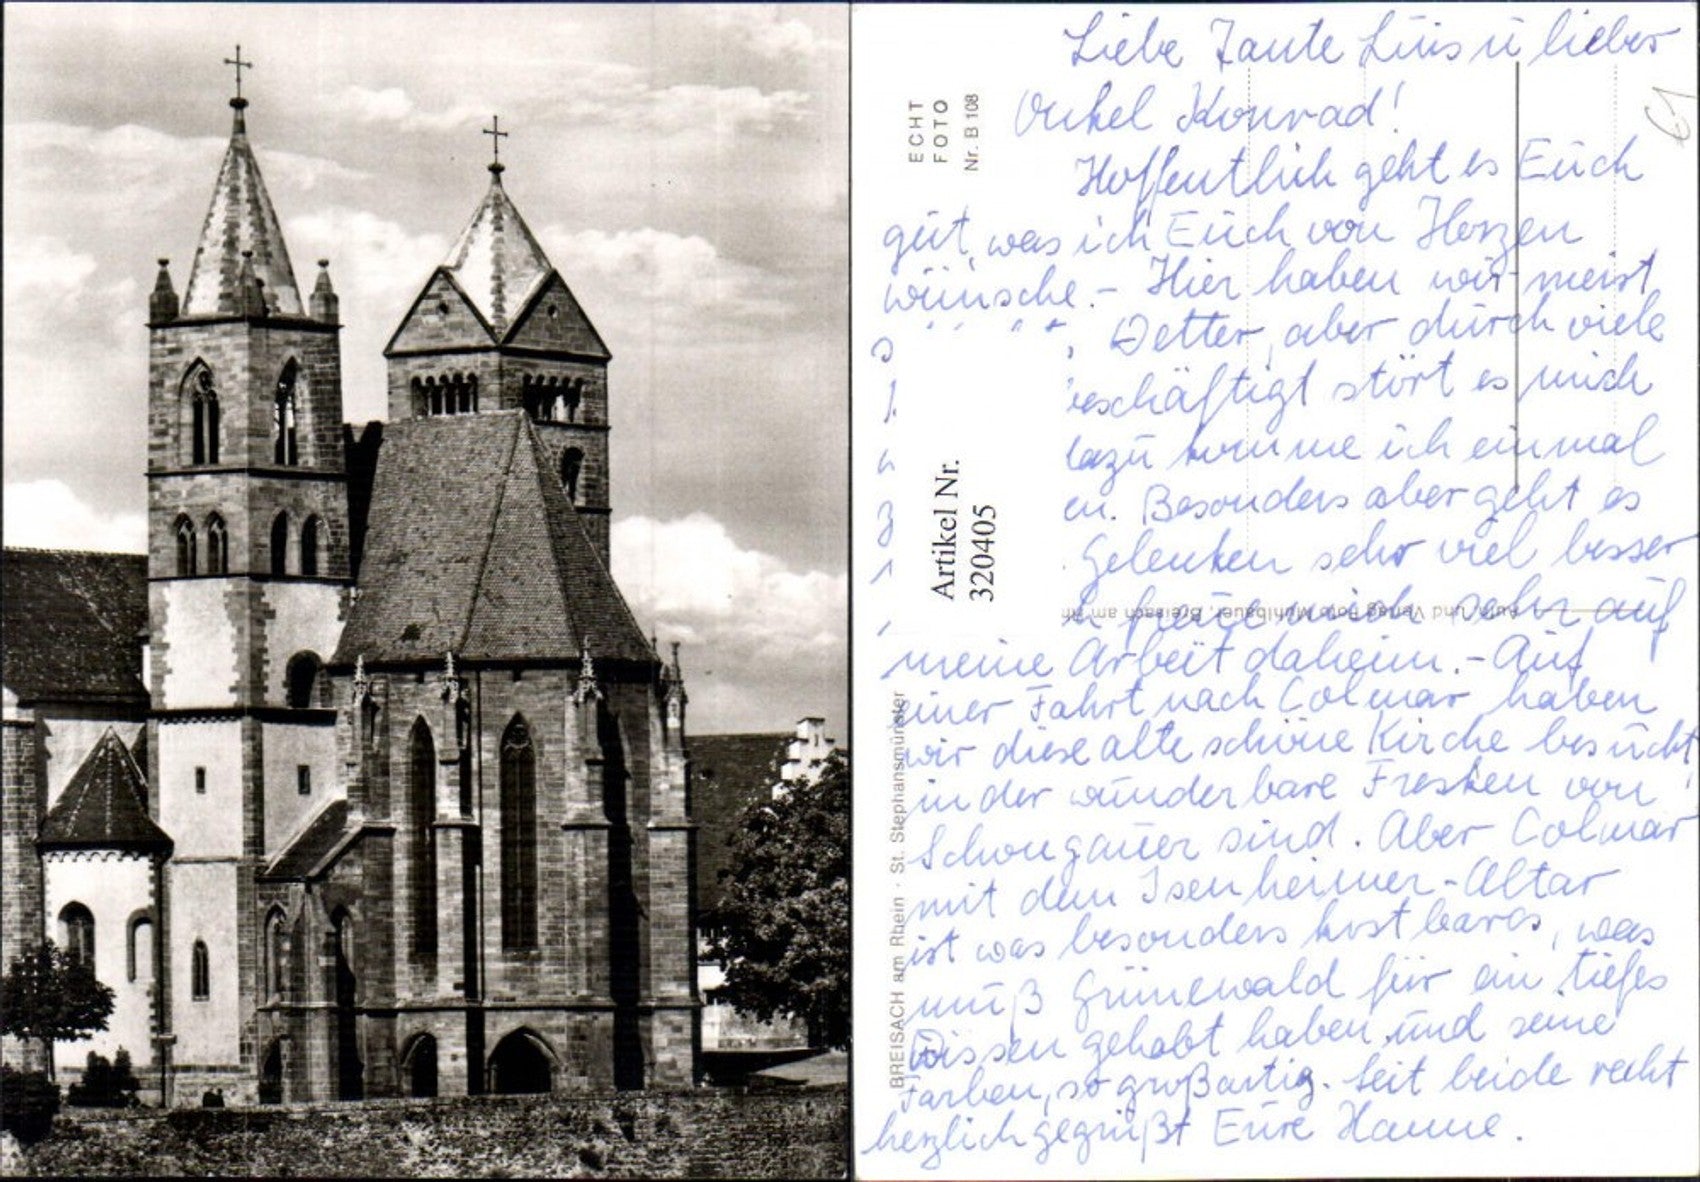 Liebe Tante Luis u lieber
Onkel Konrad!
Hoffentlich geht es Euch
gut, was ich Euch von Herzen
wünsche. - Hier haben wir meist
Wetter, aber durch viele
eschäftigt stört es mich
dazu komme ich einmal
en. Besonders aber geht es
Gelenken sehr viel besser
freue mich sehr auf
meine Arbeit daheim. - Auf
einer Fahrt nach Colmar haben
wir diese alte schöne Kirche besucht,
in der wunderbare Fresken von
Schongauer sind. Aber Colmar
mit dem Isenheimer-Altar
ist was besonders kostbares, was
muß Grünewald für ein tiefes
Wissen gehabt haben und seine
Farben, so großartig. Seit beide recht
herzlich gegrüßt Eure Hanne.
ECHT
FOTO
Nr. B 108
Artikel Nr.
320405
Aufn. und Verlag Foto Mühlbauer, Breisach am Rh
BREISACH am Rhein · St. Stephansmünster